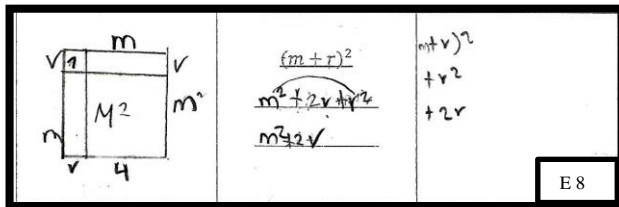 m
r 1 r
M2 m²
m
r 4
(m + r)²
m² + 2r + r²
m²+2r
m+r)²
+r²
+2r
E 8